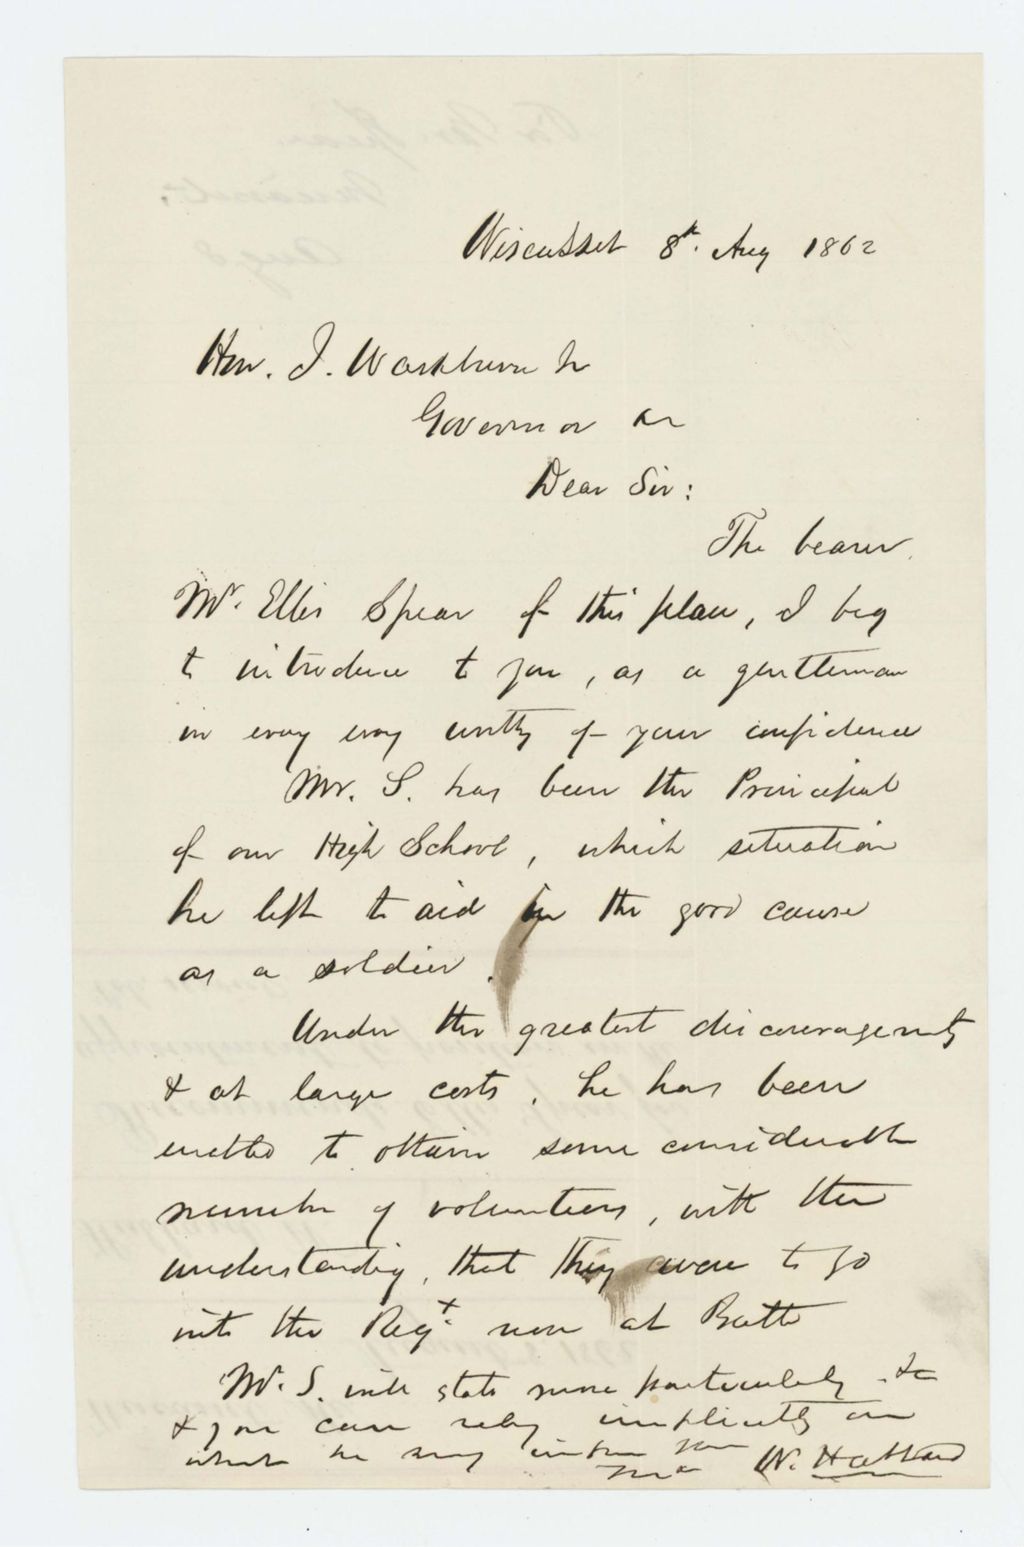 Wiscasset 8th. Aug 1862
Hon. I. Washburn Jr
Governor &c
Dear Sir:
The bearer
Mr. Ellis Spear of this place, I beg
to introduce to you, as a gentleman
in every way worthy of your confidence
Mr. S. has been the Principal
of our High School, which situation
he left to aid in the good cause
as a soldier.
Under the greatest discouragements
& at large costs, he has been
enabled to obtain some considerable
number of volunteers, with the
understanding, that they were to go
into the Regt. now at Bath
Mr. S. will state more particularly &c
& you can rely implicitly on
what he may inform you
W. Hubbard